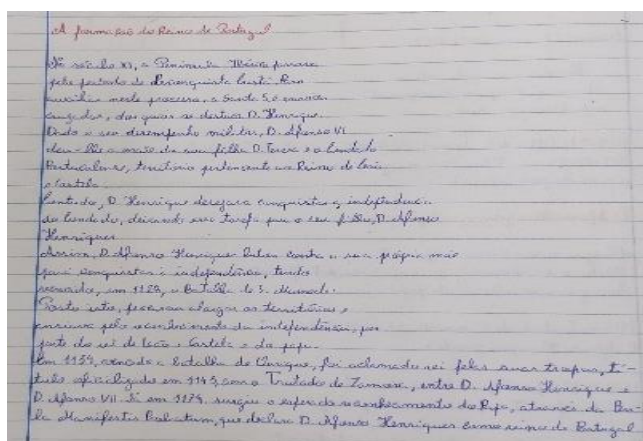 A formação do Reino de Portugal
No século XI, a Península Ibérica passava
pelo período de Reconquista Cristã. Para
auxiliar neste processo, a Santa Sé enviou
cruzados, dos quais se destaca D. Henrique.
Dado o seu desempenho militar, D. Afonso VI
deu-lhe a mão da sua filha D. Teresa e o Condado
Portucalense, território pertencente ao Reino de Leão
e Castela.
Contudo, D. Henrique desejava conquistar a independência
do Condado, deixando essa tarefa para o seu filho, D. Afonso
Henriques.
Assim, D. Afonso Henriques lutou contra a sua própria mãe
para conquistar a independência, tendo
vencido, em 1128, a Batalha de S. Mamede.
Posto isto, alargar os territórios e
pelo reconhecimento da independência, por
parte do rei de Leão e Castela e do papa.
Em 1139, vencida a batalha de Ourique, foi aclamado rei pelas suas tropas, tí-
tulo oficializado em 1143, com o Tratado de Zamora, entre D. Afonso Henriques e
D. Afonso VII. Só em 1179, surgiu o esperado reconhecimento do Papa, através da Bu-
la Manifestis Probatum, que declara D. Afonso Henriques como reino de Portugal